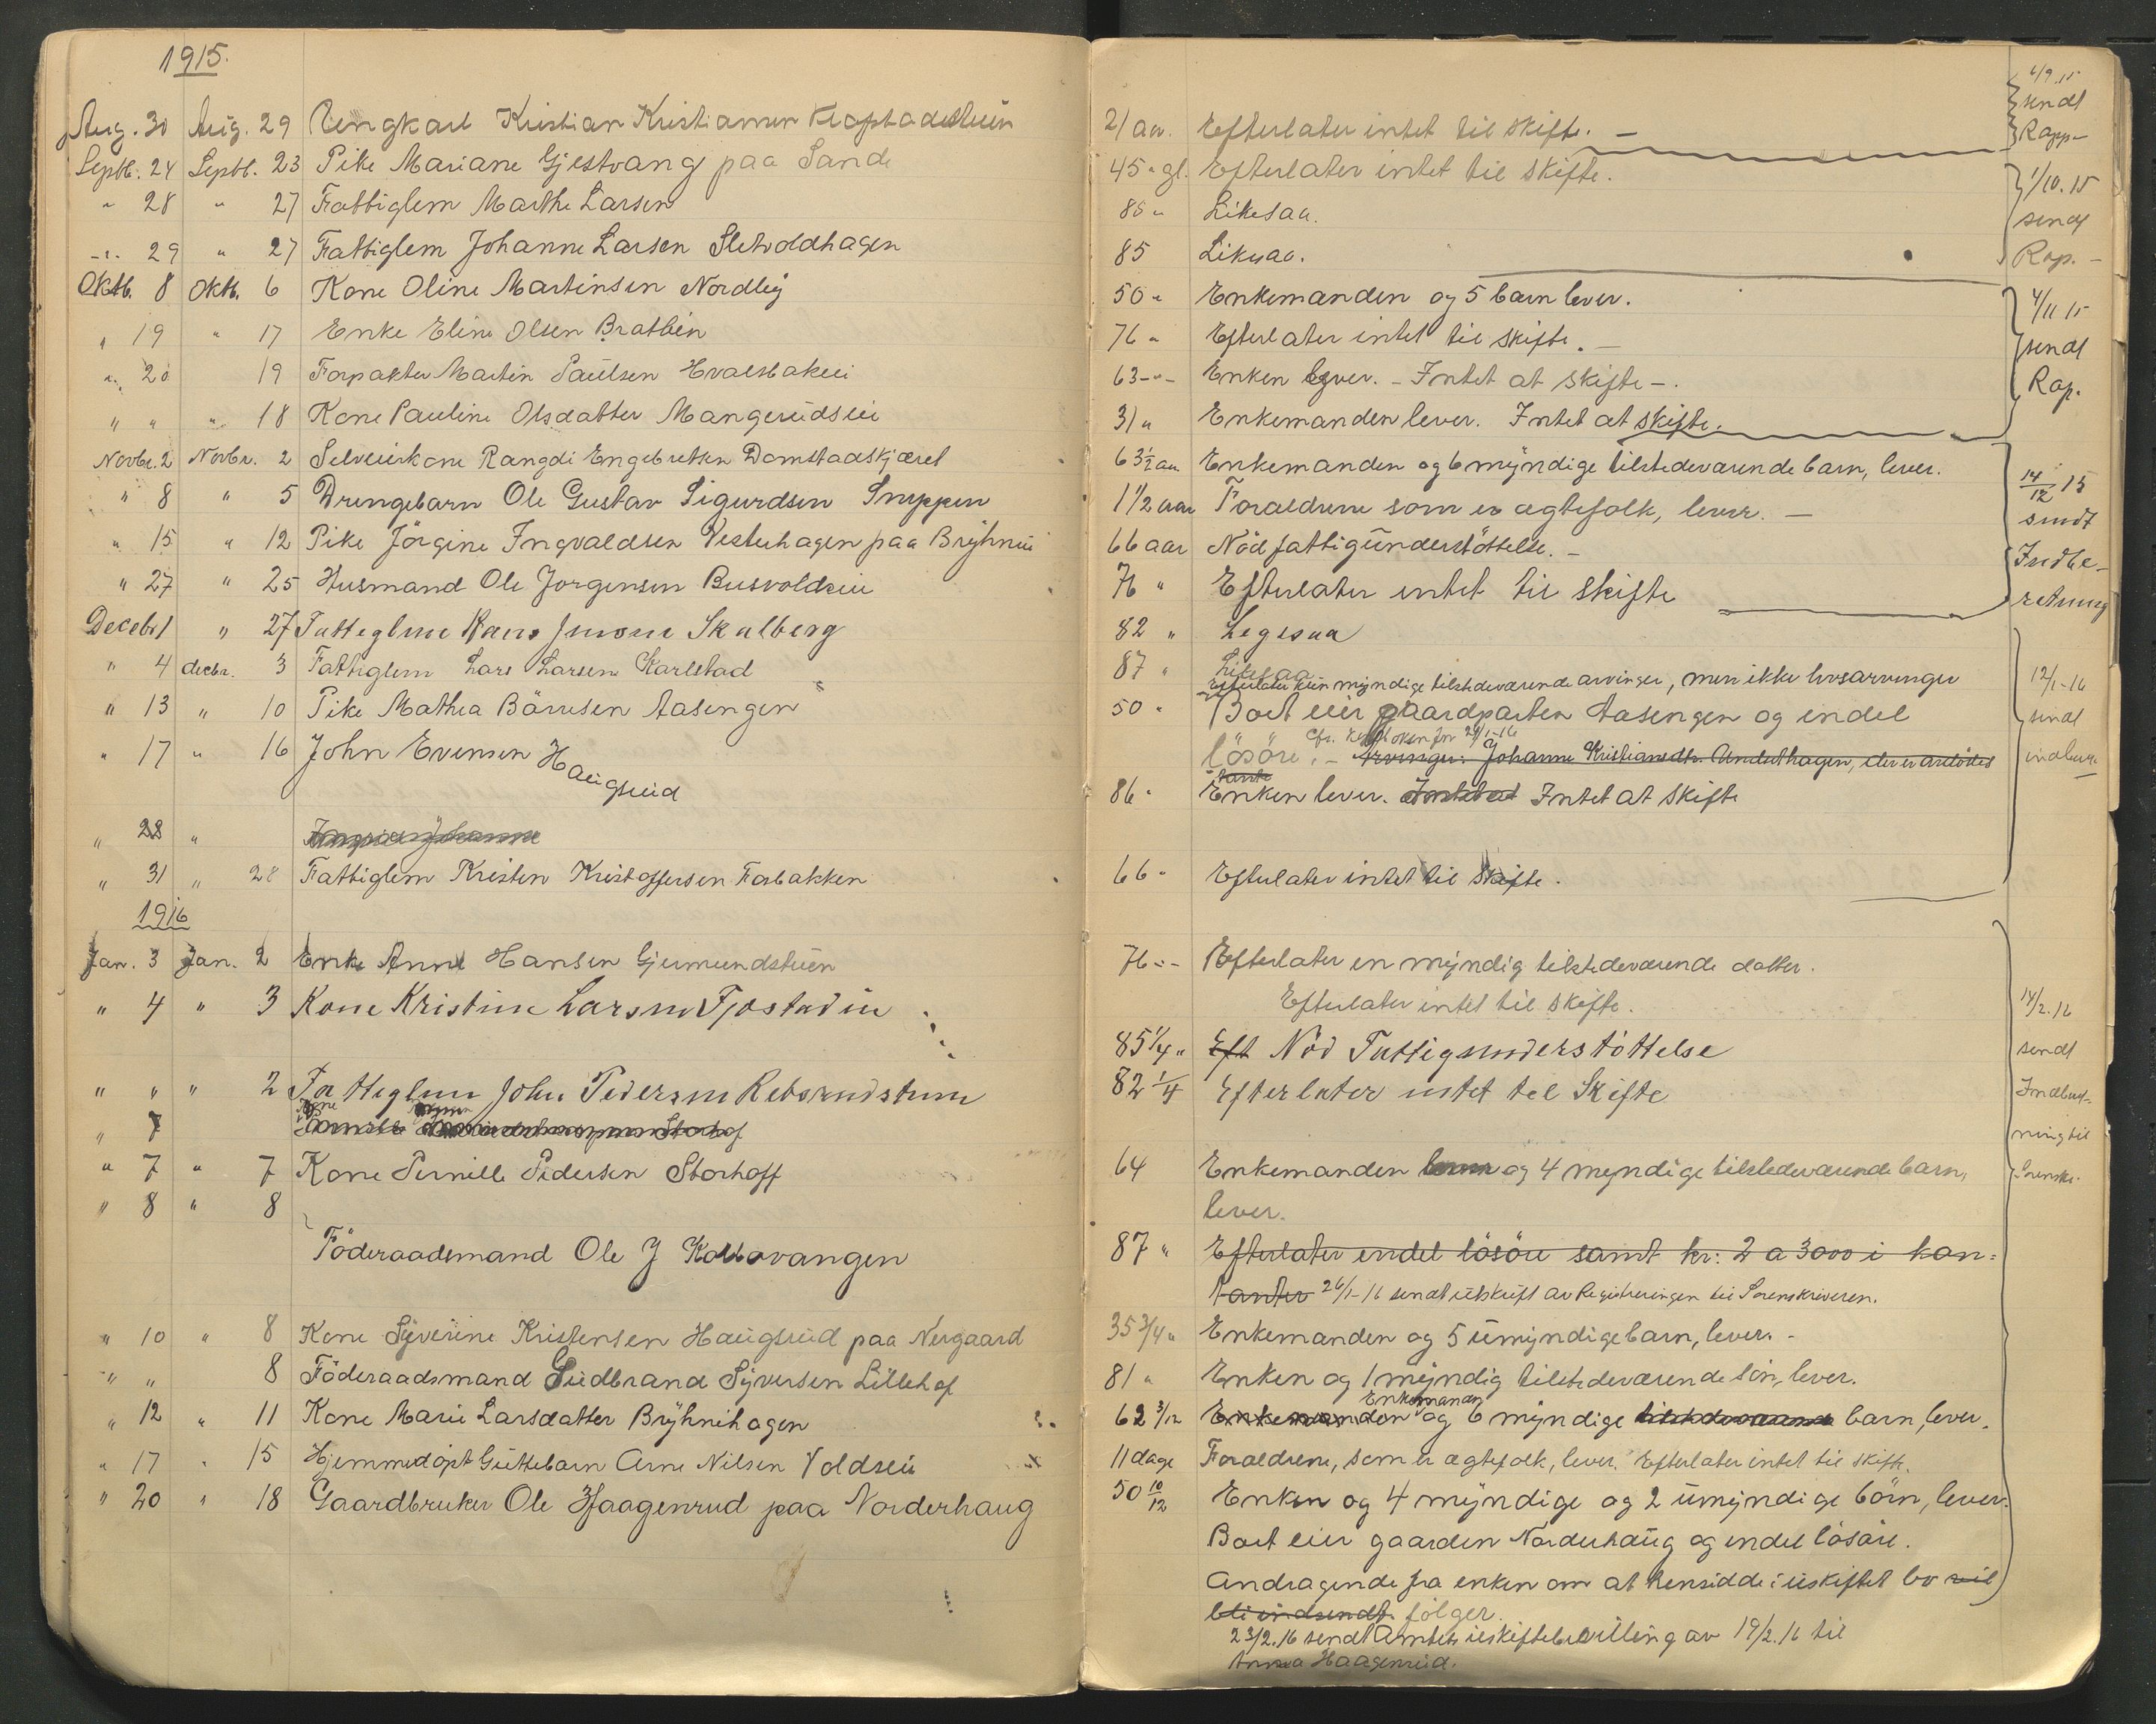 1915.
Aug. 30 Aug. 29 Ungkarl Kristian Kristiansen 21 aar. Efterlater intet til skifte. —
Septb. 24 Septb. 23 Pike Mariane Gjestvang paa Sande 45 " gl. Efterlater intet til skifte.
" 28 " 27 Fattiglem Marthe Larsen 85 " Likesaa.
" 29 " 27 Fattiglem Johanne Larsen Sletvoldhagen 85 Likesaa.
Oktb. 8 Oktb. 6 Kone Oline Martinsen Nordlig 50 " Enkemanden og 5 barn lever.
" 19 " 17 Enke Eline Olsen Bratlien 76 " Efterlater intet til skifte. —
" 20 19 Forpakter Martin Paulsen Hvalsbakeie 63 - " - Enken lever. - Intet at skifte -.
" " " 18 Kone Pauline Olsdatter Mangerudseie 31 " Enkemanden lever. Intet at skifte.
Novbr. 2 Novbr. 2 Selveierkone Rangdi Engebretsen Domstadskjæret 63½ aar Enkemanden og 6 myndige tilstedeværende barn, lever.
" 8 " 5 Drengebarn Ole Gustav Sigurdsen Snippen 1 1/2 aar Foraeldrene som er ægtefolk, lever. —
" 15 " 12 Pike Jörgine Ingvaldsen Vesterhagen paa Bryhnie 66 aar Nöd fattigunderstöttelse. -
" 27 " 25 Husmand Ole Jorgensen Busvoldeie 76 " Efterlater intet til skifte
Decebr 1 " 27 Fattiglem Hans Jensen Skalberg 82 " Legesaa
" 4 decbr. 3 Fattiglem Lars Larsen Karlstad 87 " Likesaa
Efterlater kun myndige tilstedeværende arvinger, men ikke livsarvinger
" 13 " 10 Pike Mathea Börresen Aasengen 50 " Boet eier gaardparten Aasengen og endel
lösöre. - Arvinger: Johanne Kristiansdtr. Anderthagen,
tante
" 17 " 16 John Evensen Haugseid 86 " Enken lever. Intet at Intet at skifte
" 28 "
" 31 " 28 Fattiglem Kristen Kristoffersen Forbakken 66 " Efterlater intet til skifte.
1916
Jan. 3 Jan. 2 Enke Anne Hansen Gjermundstuen 76 - " - Efterlater en myndig tilstedeværende datter.
Efterlater intet til skifte.
" 4 " 3 Kone Kristine Larsen Fjostadeie 85 1/4 " Eft Nöd Fattigunderstöttelse
" " " 2 Fattiglem John Pedersen Rebsrudstuen 82 1/4 Efterlater intet til Skifte
" 7
" 7 " 7 Kone Pernille Pedersen Storhoff 64 Enkemanden og 4 myndige tilstedeværende barn,
lever.
" 8 " 8
Föderaadsmand Ole J Kollovangen 87 " Efterlater endel lösöre samt kr: 2 a 3000 i kon-
tanter 26/1-16 sendt utskrift av Registreringen til Sorenskriveren.
" 10 " 8 Kone Syverine Kristensen Haugsrud paa Nergaard 35 3/4 " Enkemanden og 5 umyndige barn, lever. -
" " 8 Föderaadsmand Gudbrand Syversen Lillehof 81 " Enken og 1 myndig tilstedeværende sön, lever.
Enkemanden
" 12 " 11 Kone Marie Larsdatter Bryhnihagen 62 3/12 Enkemanden og 6 myndige tilstedeværende barn, lever.
" 17 " 15 Hjemmedöpt Guttebarn Arne Nilsen Voldseie 11 dage Foraeldrene, som er ægtefolk, lever. Efterlater intet til skifte.
" 20 " 18 Gaardbruker Ole Haagenrud paa Norderhaug 50 10/12 Enken og 4 myndige og 2 umyndige börn, lever.
Boet eier gaarden Norderhaug og endel lösöre.
Andragende fra enken om at hensidde i uskiftet bo vil
bli indsendt. fölger.
23/2.16 sendt Amtets uskiftebevilling av 19/2.16 til
Anna Haagenrud.
6/9.15
sendt
Rapp-
1/10.15
sendt
Rap. -
4/11 15
sendt
Rap.
14/12 15
sendt
Indbe-
retning
12/1-16
sendt
indber.
14/2.16
sendt
Indberet-
ning til
Sorensk.